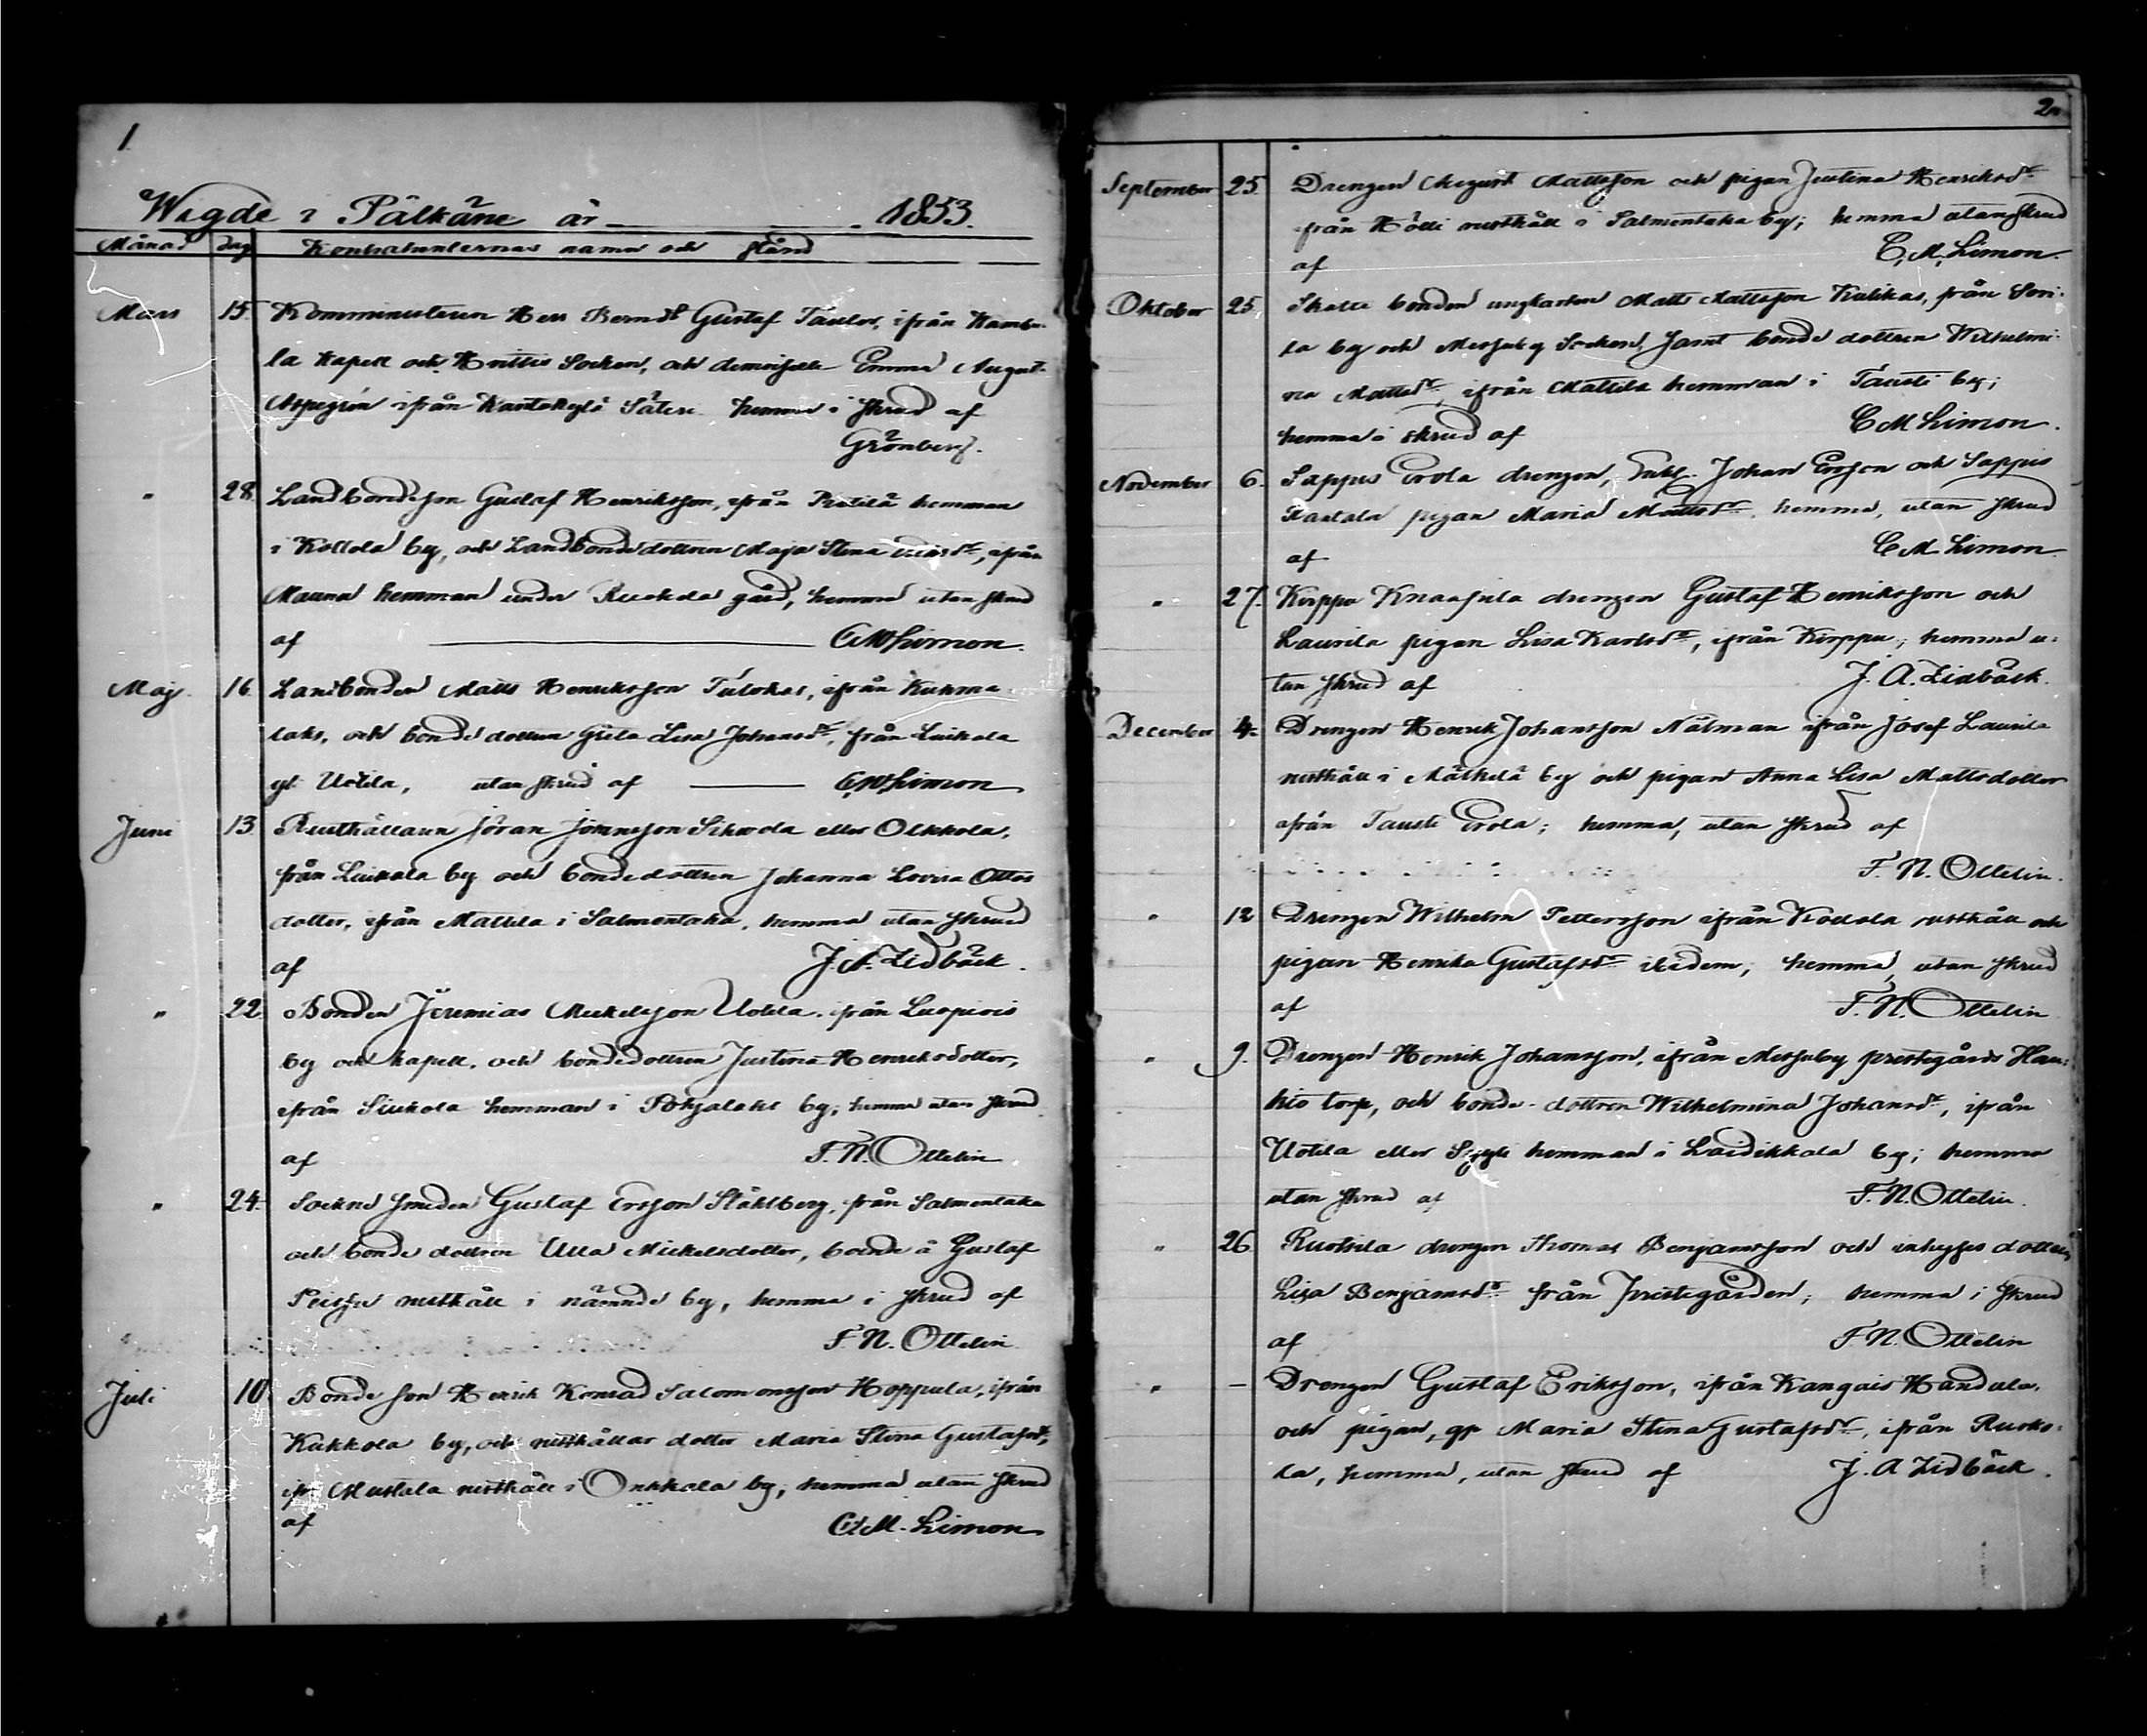 1.
Wigde i Pälkäne år 1853.
Månad Dag Kontrahenternas namn och stånd
Mars 15. Komministern Herr Bernd. Gustaf Taulér, ifrån Kamba-
la Kapell och Hvittis Socken, och demoiselle Emma August.
Aspegrén ifrån Kantokylä Säteri hemma i skrud af
Grönberg.
" 28. Landbondeson Gustaf Henriksson, ifrån Pietilä hemman
i Kollola by, och Landbondedottren Maja Stina ifrån
Mauna hemman under Ruokola gård, hemma utan skrud
af C. M. Limon.
Maj 16. Landbonden Matts Henriksson Tulokas, ifrån Kuhma
laks, och bondedottren Greta Lisa Johansdr, från Luikala
gt. Uotila, utan skrud af C. M. Limon
Juni 13 Rusthållaren Jöran Jöransson Sihvola eller Olkkola,
från Luikala by och bondedottren Johanna Lovisa Ottos
dotter, ifrån Mattila i Salmentaka, hemma utan skrud
af J. A. Lidbäck.
" 22. Bonden Jeremias Mickelsson Uotila, ifrån Luopiois
by och kapell, och bondedottren Justina Henriksdotter,
ifrån Siukola hemman i Pohjalaht by; hemma utan skrud
af F. N. Ottelin.
" 24. Sockne smeden Gustaf Ersson Ståhlberg, från Salmentaka
och bonde dottren Ulla Mickelsdotter, boende å Gustaf
rusthåll i nämnde by, hemma i skrud af
F. N. Ottelin
Juli 10 Bonde son Henrik Konrad Salomonsson Hoppula, ifrån
Kukkola by, och rusthållar dotter Maria Stina Gustafsdr,
ifr. Mustala rusthåll i Onkkala by; hemma utan skrud
af C. M. Limon
2.
September 25. Drengen August Mattsson och pigan Justina Henriksdr
från Hölli rusthåll i Salmentaka by; hemma utan skrud
af C. M. Limon.
Oktober 25. Skatte bonden ungkarlen Matts Mattsson Kulikas, från Sori-
la by och Messuby Socken, samt bonde dottren Wilhelmi-
na Mattsdr, ifrån Mattila hemman i Tausti by;
hemma i skrud af C M Limon.
November 6. Sappis Erola drengen, Enkl. Johan Ersson och Sappis
Kantola pigan Maria Mattsdr. hemma, utan skrud
af C. M. Limon.
" 27. Kirppu Knaapila drengen Gustaf Henriksson och
Laurila pigan Lisa Karlsdr, ifrån Kirppu; hemma u-
tan skrud af J. A. Lidbäck.
December 4. Drengen Henrik Johansson Nälman ifrån Josef Laurila
rusthåll i Mälkilä by och pigan Anna Lisa Mattsdotter
ifrån Tausti Erola; hemma, utan skrud af
F. N. Ottelin.
" 12 Drengen Wilhelm Pettersson ifrån Kollola rusthåll och
pigan Henrika Gustafsdr ibidem; hemma, utan skrud
af F. N. Ottelin
" 9. Drengen Henrik Johansson, ifrån Messuby prestegårds Hau-
hio torp, och bonde dottren Wilhelmina Johansdr, ifrån
Uotila eller hemman i Laidikkala by; hemma
utan skrud af F. N. Ottelin.
" 26. Ruotsila drengen Thomas Benjamsson och inhyses dottren
Lisa Benjamsdr från Prestegården; hemma i skrud
af F. N. Ottelin
" – Drengen Gustaf Eriksson, ifrån Kangais Handala,
och pigan, qp Maria Stina Gustafsdr, ifrån Ruoko-
la, hemma, utan skrud af J. A Lidbäck.